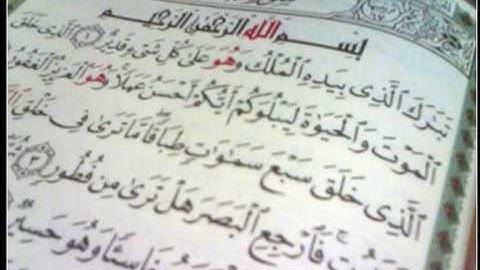 بِسْمِ ٱللَّهِ ٱلرَّحْمَٰنِ ٱلرَّحِيمِ
تَبَٰرَكَ ٱلَّذِى بِيَدِهِ ٱلْمُلْكُ وَهُوَ عَلَىٰ كُلِّ شَىْءٍ قَدِيرٌ ١ ٱلَّذِى خَلَقَ
ٱلْمَوْتَ وَٱلْحَيَوٰةَ لِيَبْلُوَكُمْ أَيُّكُمْ أَحْسَنُ عَمَلًا وَهُوَ ٱلْعَزِيزُ ٱلْغَفُورُ
ٱلَّذِى خَلَقَ سَبْعَ سَمَٰوَٰتٍ طِبَاقًا مَّا تَرَىٰ فِى خَلْقِ
فَٱرْجِعِ ٱلْبَصَرَ هَلْ تَرَىٰ مِن فُطُورٍ ٣
خَاسِئًا وَهُوَ حَسِيرٌ